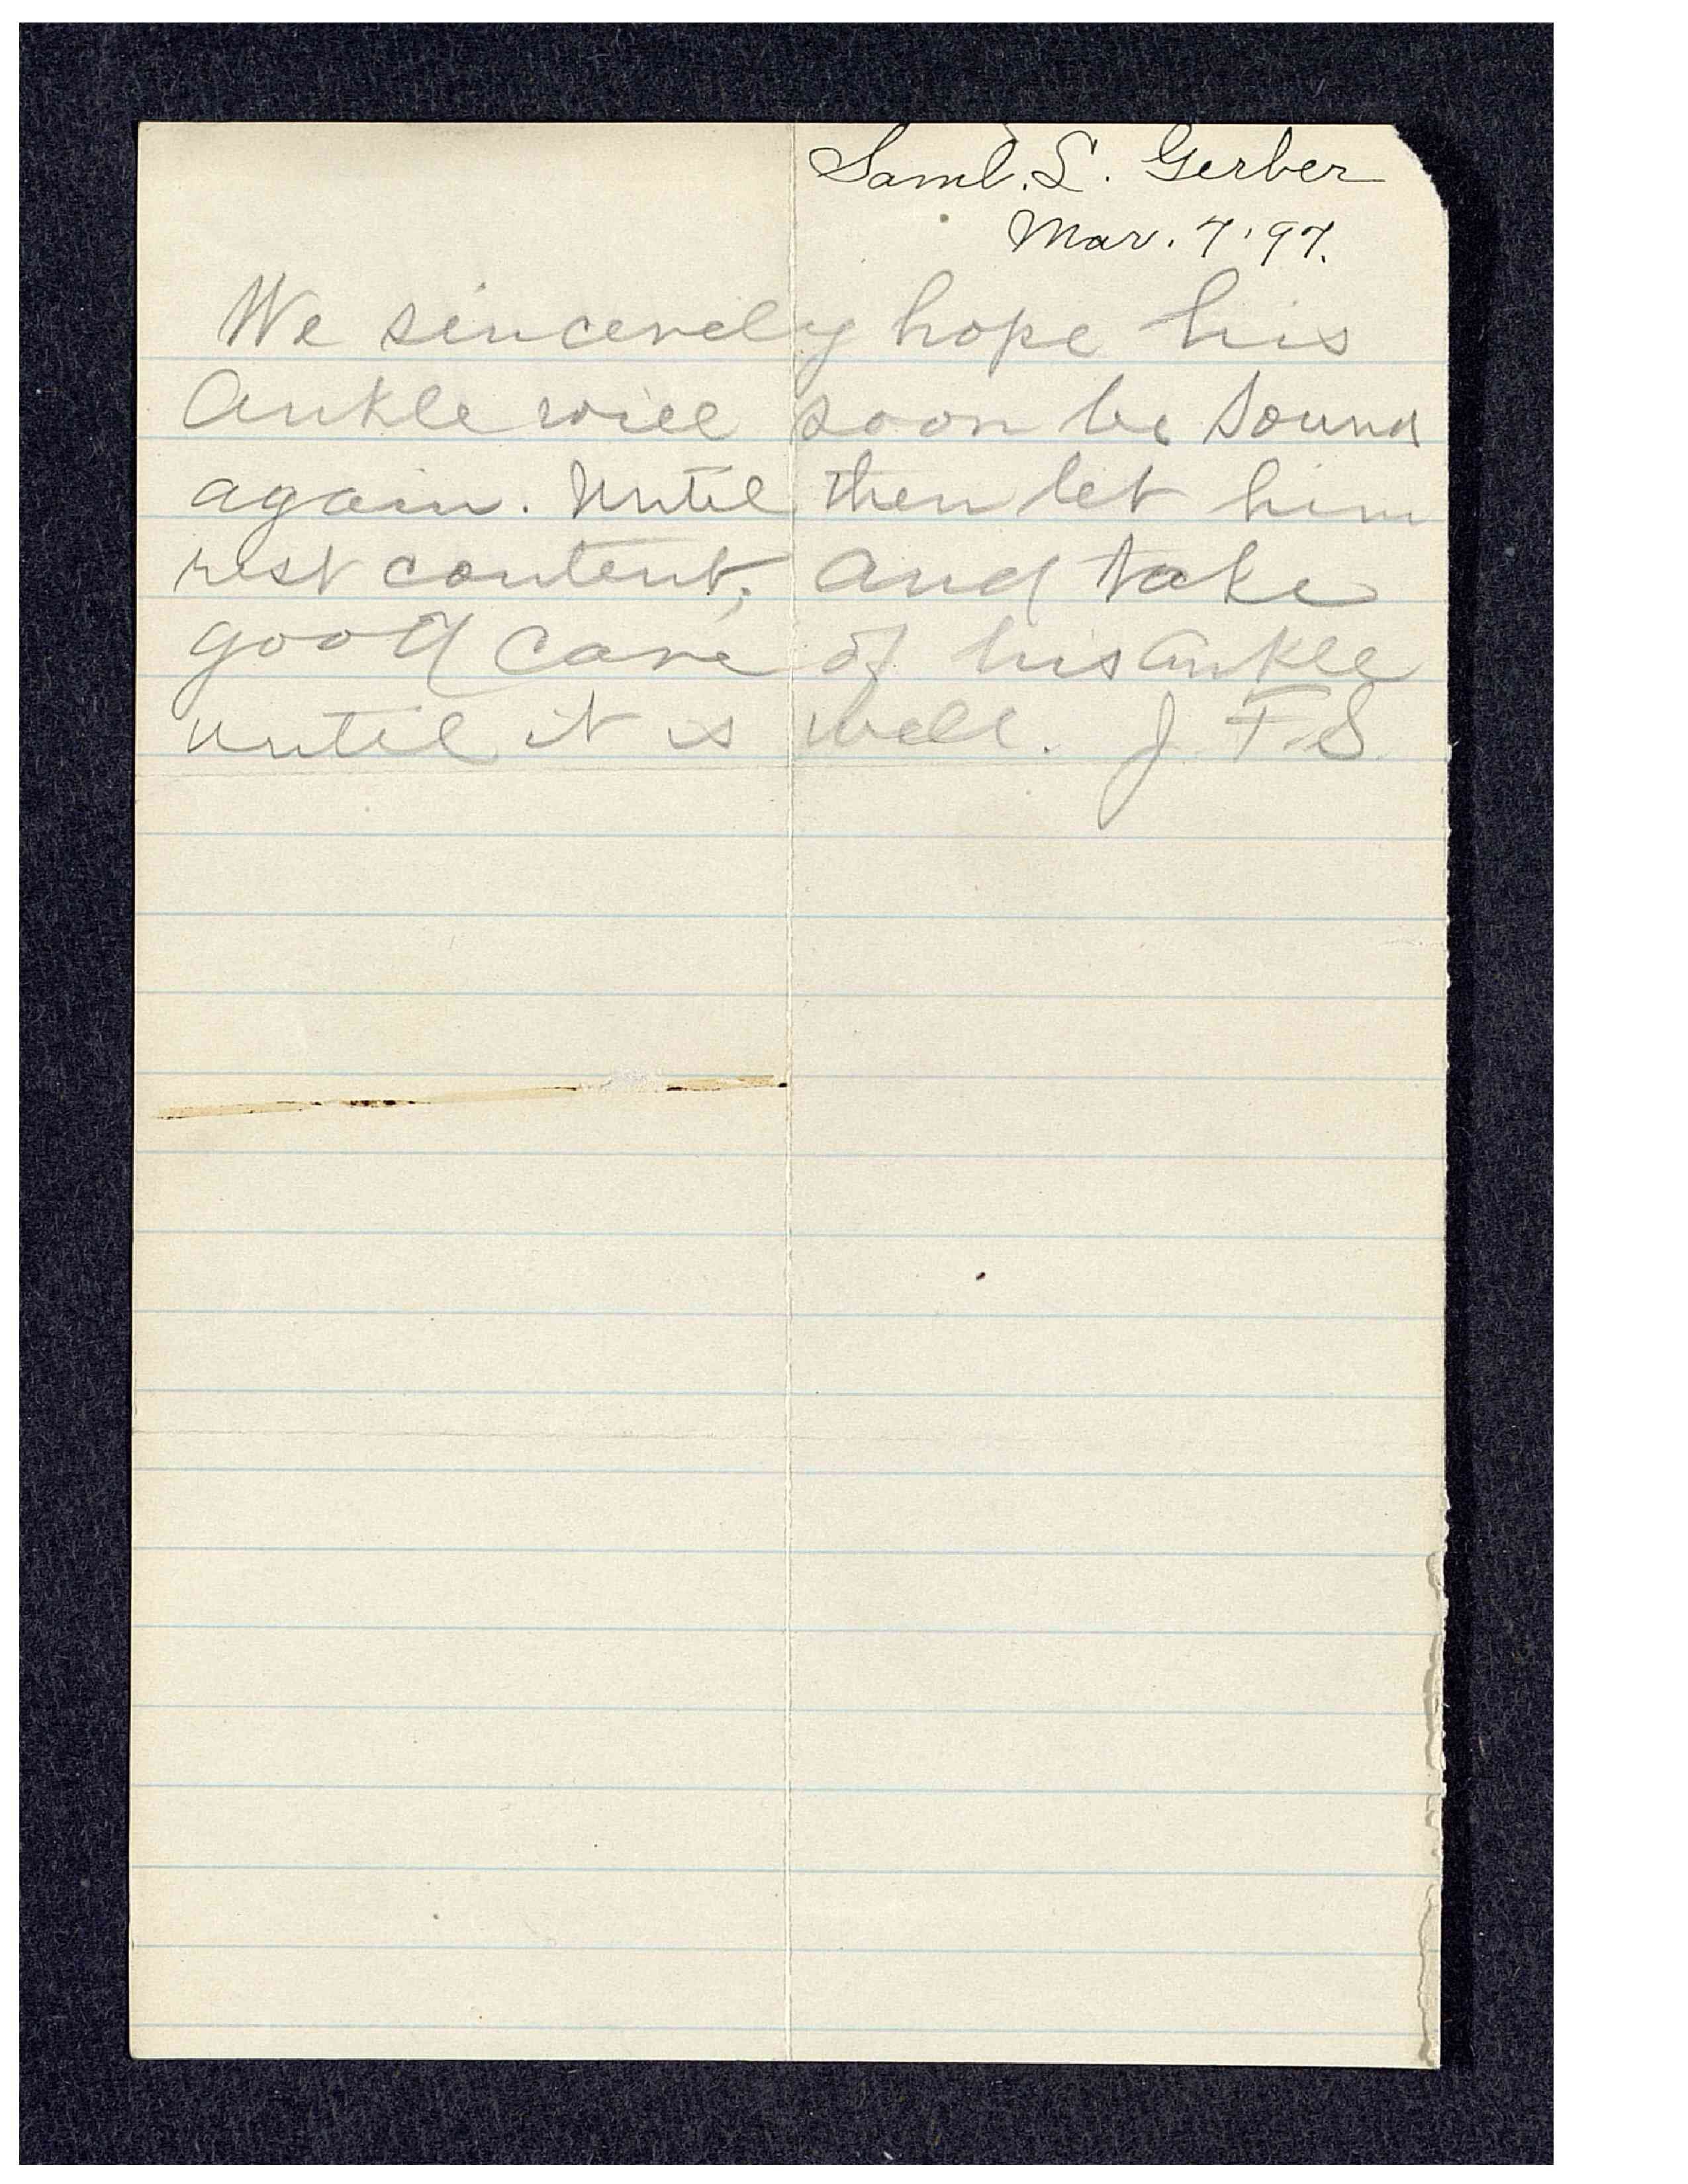 Saml. S. Gerber
Mar. 7. '97.
We sincerely hope his
Ankle will soon be sound
again. Until then let him
rest content; and take
good care of his ankle
until it is well. J. F. S.